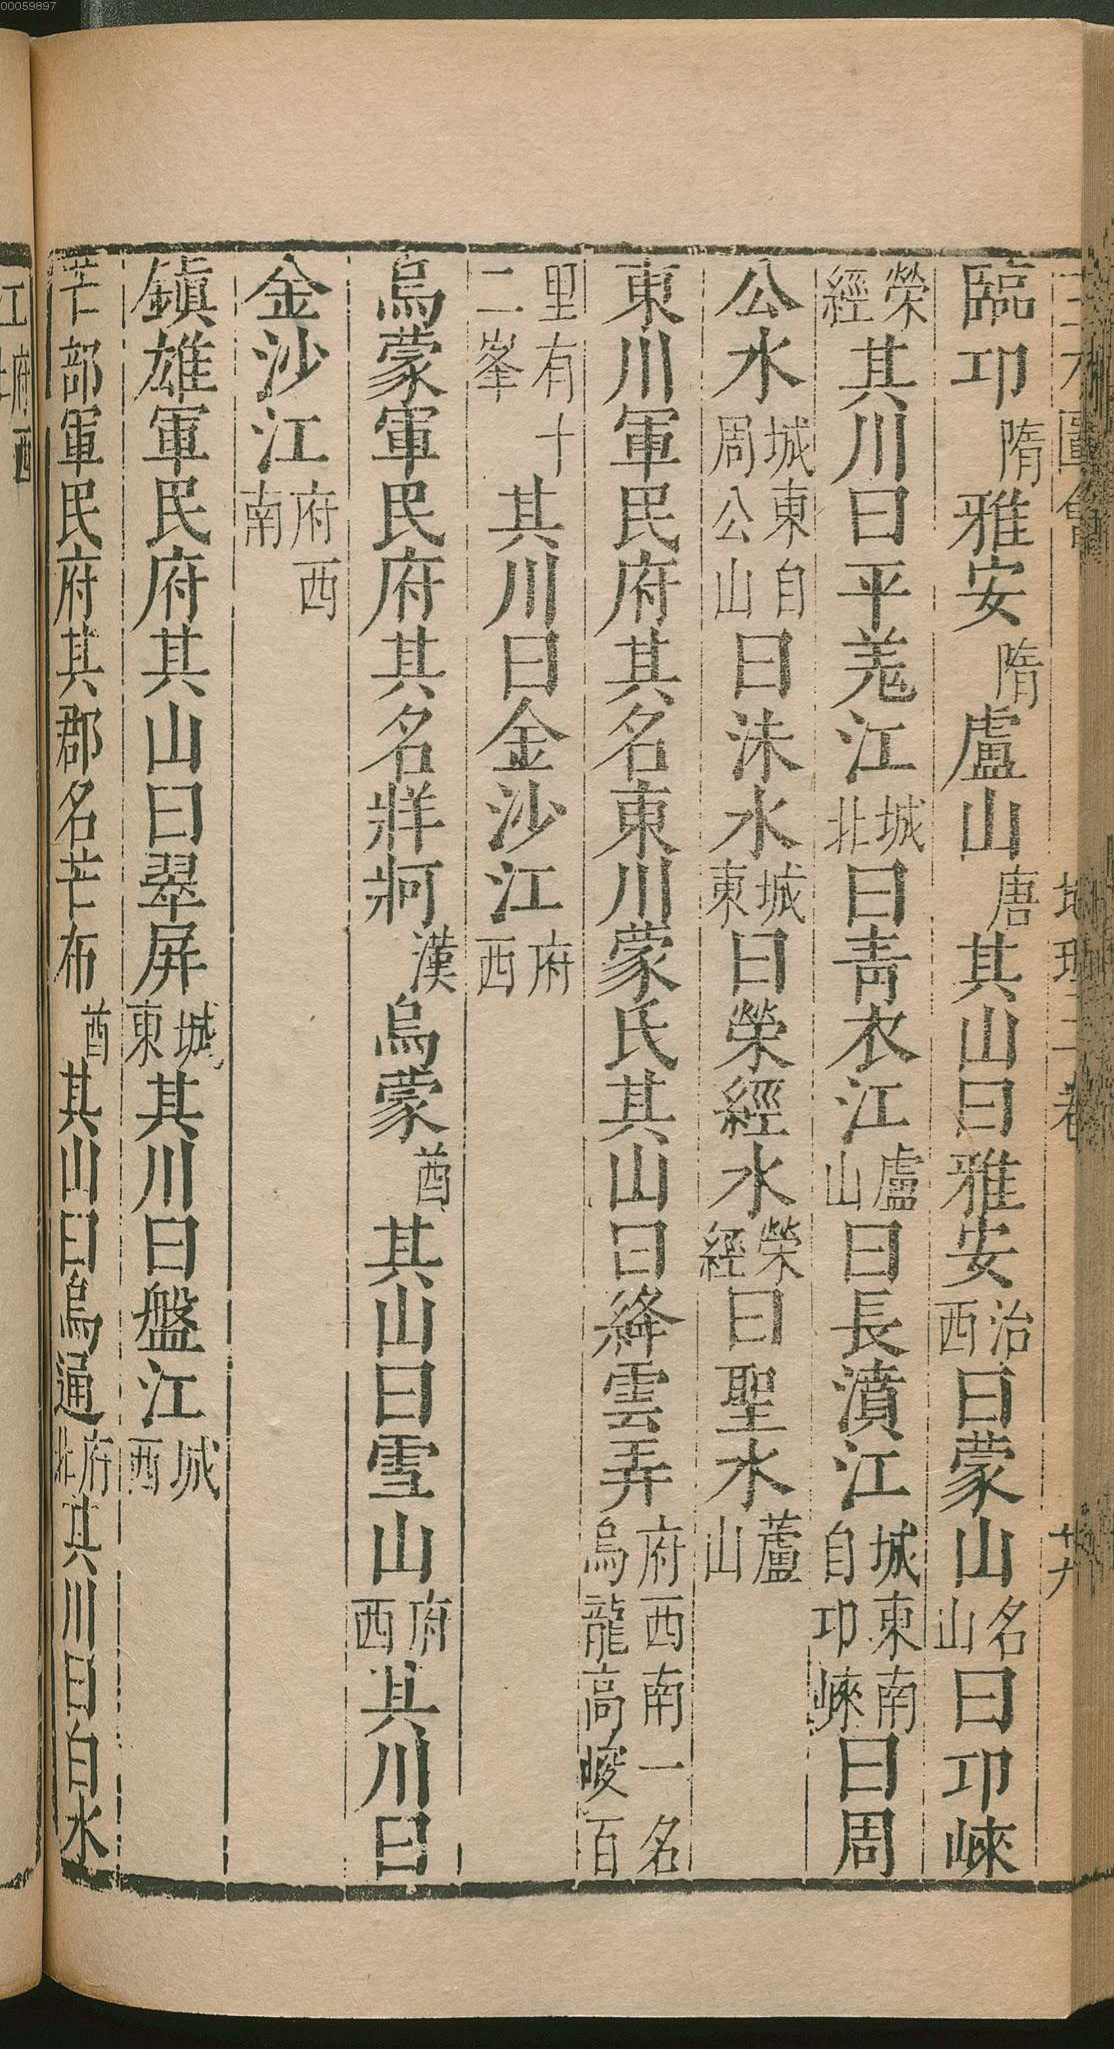 00059897
三才圖會 地理三卷 廿九
臨邛隋雅安隋盧山唐其山曰雅安治西曰蒙山名山曰邛崍
榮經其川曰平羗江城北曰青衣江盧山曰長濆江城東南自邛崍曰周
公水城東自周公山曰沬水城東曰榮經水榮經曰聖水蘆山
東川軍民府其名東川蒙氏其山曰絳雲弄府西南一名烏龍高峻百
里有十二峯其川曰金沙江府西
烏蒙軍民府其名牂牁漢烏蒙酋其山曰雪山府西其川曰
金沙江府西南
鎮雄軍民府其山曰翠屏城東其川曰盤江城西
芒部軍民府其郡名芒布酋其山曰烏通府北其川曰白水
江府西